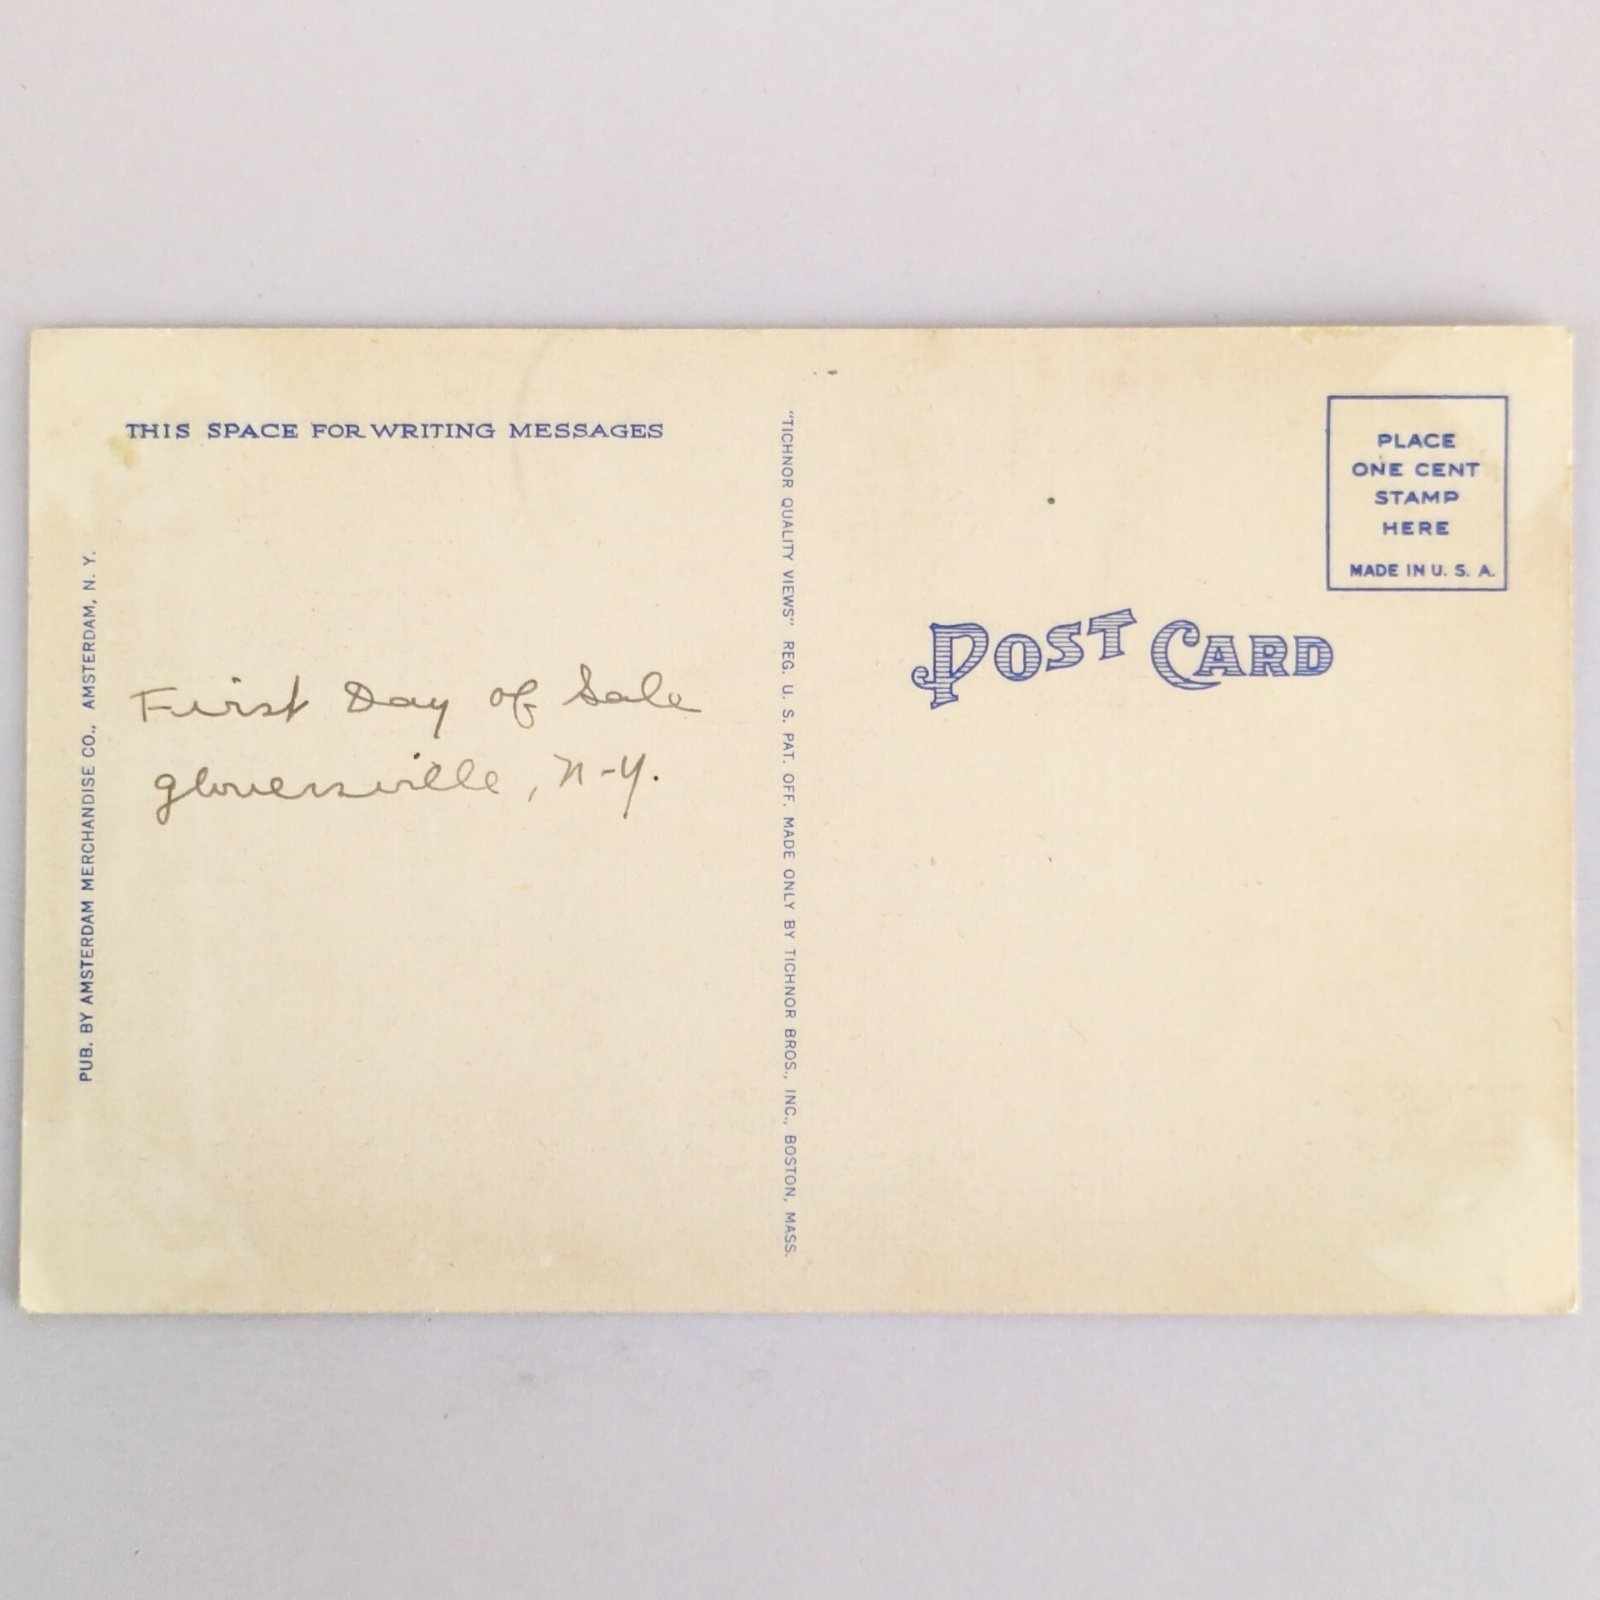 THIS SPACE FOR WRITING MESSAGES
PUB. BY AMSTERDAM MERCHANDISE CO., AMSTERDAM, N. Y.
First Day of Sale
gloversville, N-Y.
"TICHNOR QUALITY VIEWS" REG. U. S. PAT. OFF. MADE ONLY BY TICHNOR BROS., INC., BOSTON, MASS.
PLACE
ONE CENT
STAMP
HERE
MADE IN U. S. A.
POST CARD